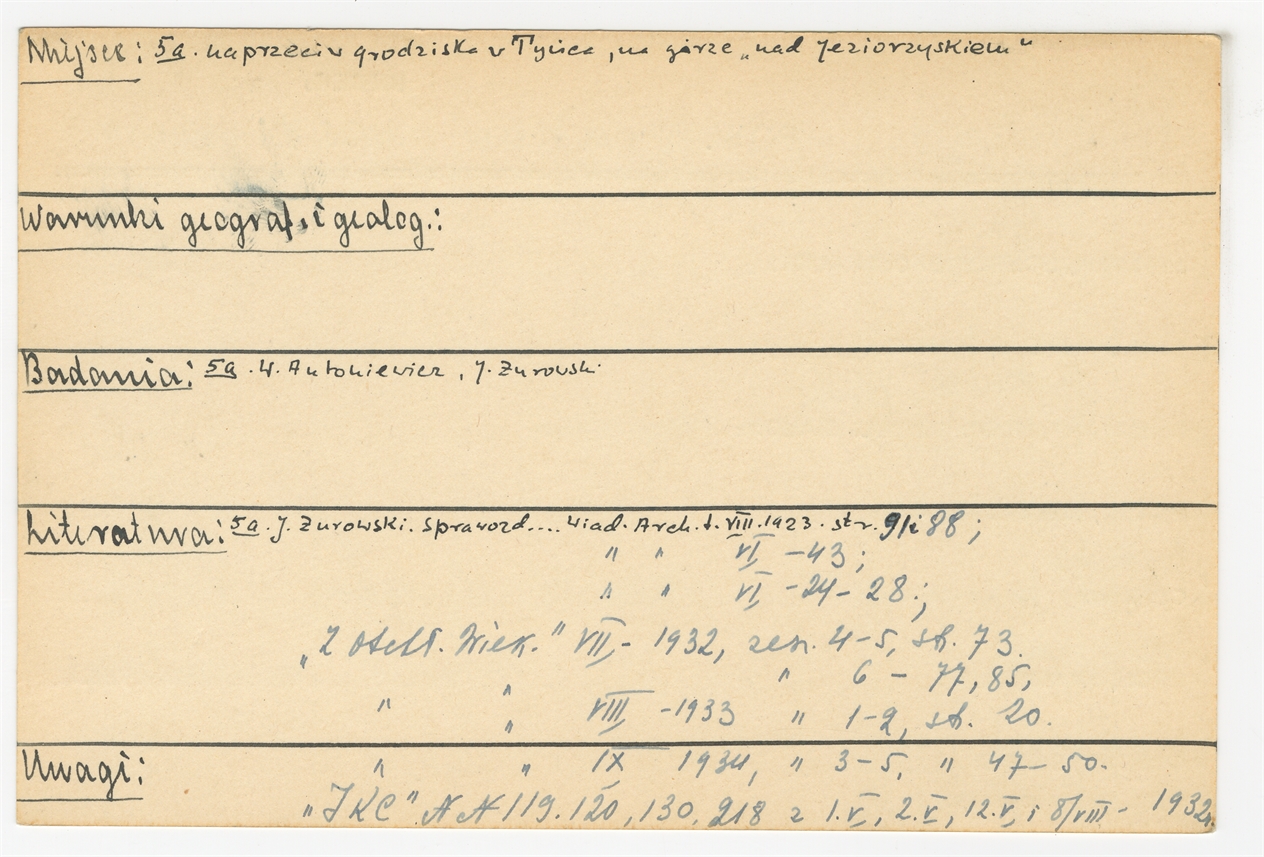 Miejsce: 5a. naprzeciw grodziska w Tyńcu, na górze „nad Jeziorzyskiem"
Warunki geograf. i geolog.:
Badania: 5a. W. Antoniewicz, J. Żurowski
Literatura: 5a. J. Żurowski. Sprawozd.... Wiad. Arch. t. VIII. 1923. str. 91 i 88;
" " VI -43;
" " VI -24-28;
„Z otchł. Wiek." VII,- 1932, zesz. 4-5, st. 73.
" " 6 - 77, 85,
" " VIII, -1933 " 1-2, st. 20.
Uwagi:
" " IX 1934, " 3-5, " 47-50.
„IKC" NN 119. 120, 130, 218 z 1.V, 2.V, 12.V, i 8/VIII - 1932r.